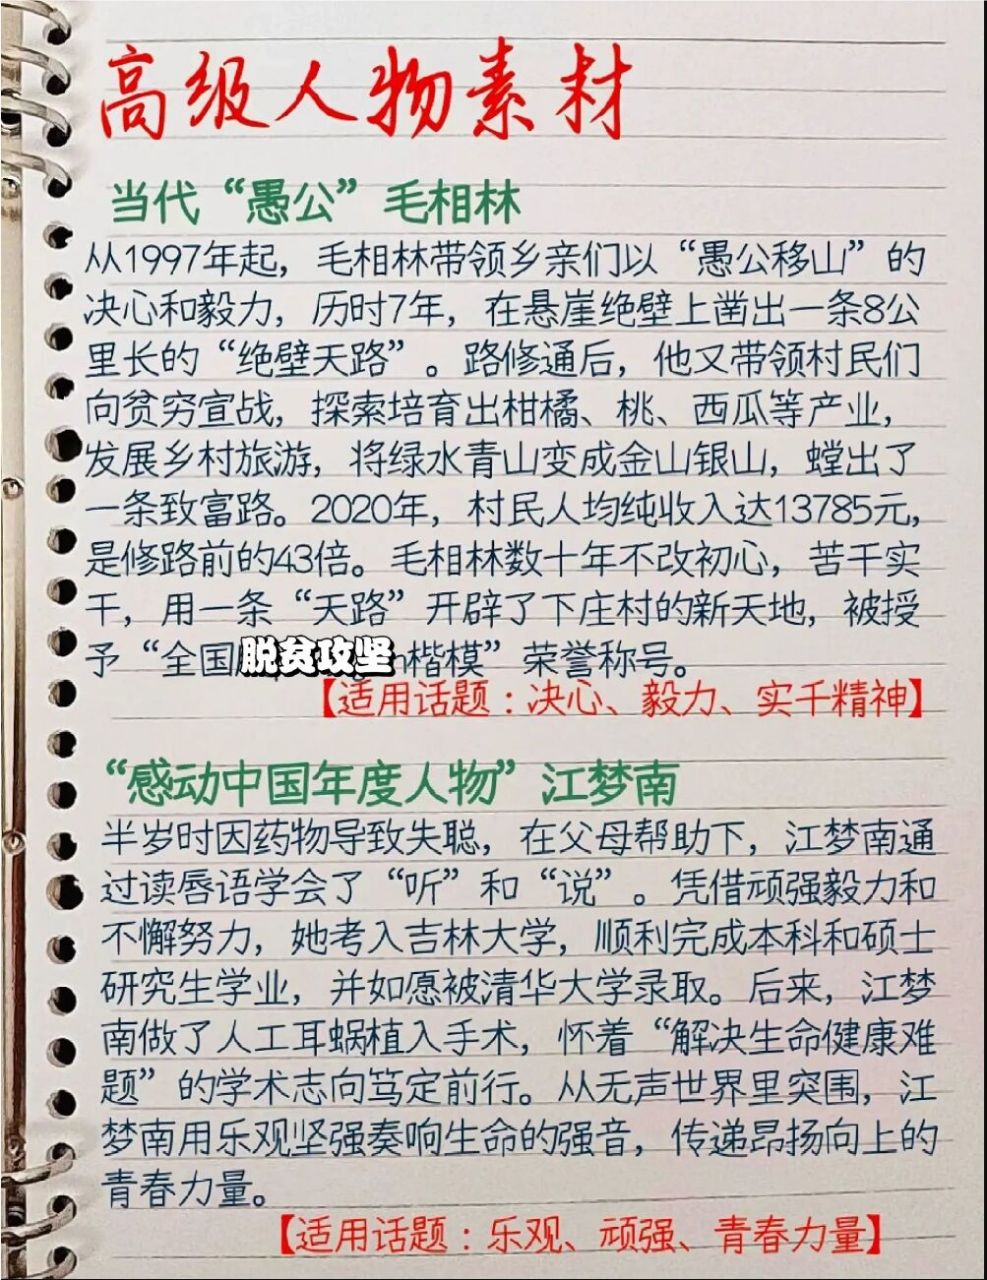 高级人物素材
当代“愚公”毛相林
从1997年起，毛相林带领乡亲们以“愚公移山”的
决心和毅力，历时7年，在悬崖绝壁上凿出一条8公
里长的“绝壁天路”。路修通后，他又带领村民们
向贫穷宣战，探索培育出柑橘、桃、西瓜等产业，
发展乡村旅游，将绿水青山变成金山银山，螳出了
一条致富路。2020年，村民人均纯收入达13785元，
是修路前的43倍。毛相林数十年不改初心，苦干实
干，用一条“天路”开辟了下庄村的新天地，被授
予“全国脱贫攻坚楷模”荣誉称号。
【适用话题：决心、毅力、实干精神】
“感动中国年度人物”江梦南
半岁时因药物导致失聪，在父母帮助下，江梦南通
过读唇语学会了“听”和“说”。凭借顽强毅力和
不懈努力，她考入吉林大学，顺利完成本科和硕士
研究生学业，并如愿被清华大学录取。后来，江梦
南做了人工耳蜗植入手术，怀着“解决生命健康难
题”的学术志向笃定前行。从无声世界里突围，江
梦南用乐观坚强奏响生命的强音，传递昂扬向上的
青春力量。
【适用话题：乐观、顽强、青春力量】